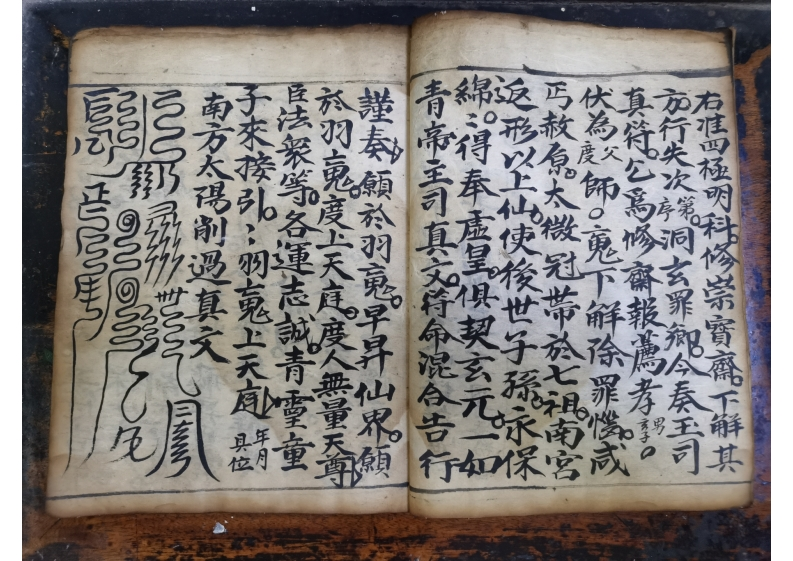 右准四極明科修崇寳齋下解其
方行失次第序洞玄罪鄉今奏玉司
真符乞爲修齋報薦孝男
伏為父度師鬼下解除罪愆咸
丐赦原太微冠帶於七祖南宮
返形以上仙使後世子孫永保
綿綿得奉虛皇俱契玄元一如
青帝主司真文符命混合告行
謹奏願於羽鬼早昇仙界願
於羽鬼度上天庭度人無量天尊
臣法衆等各運志誠青靈童
子來接引引羽鬼上天庭 年月具位
南方太陽削過真文